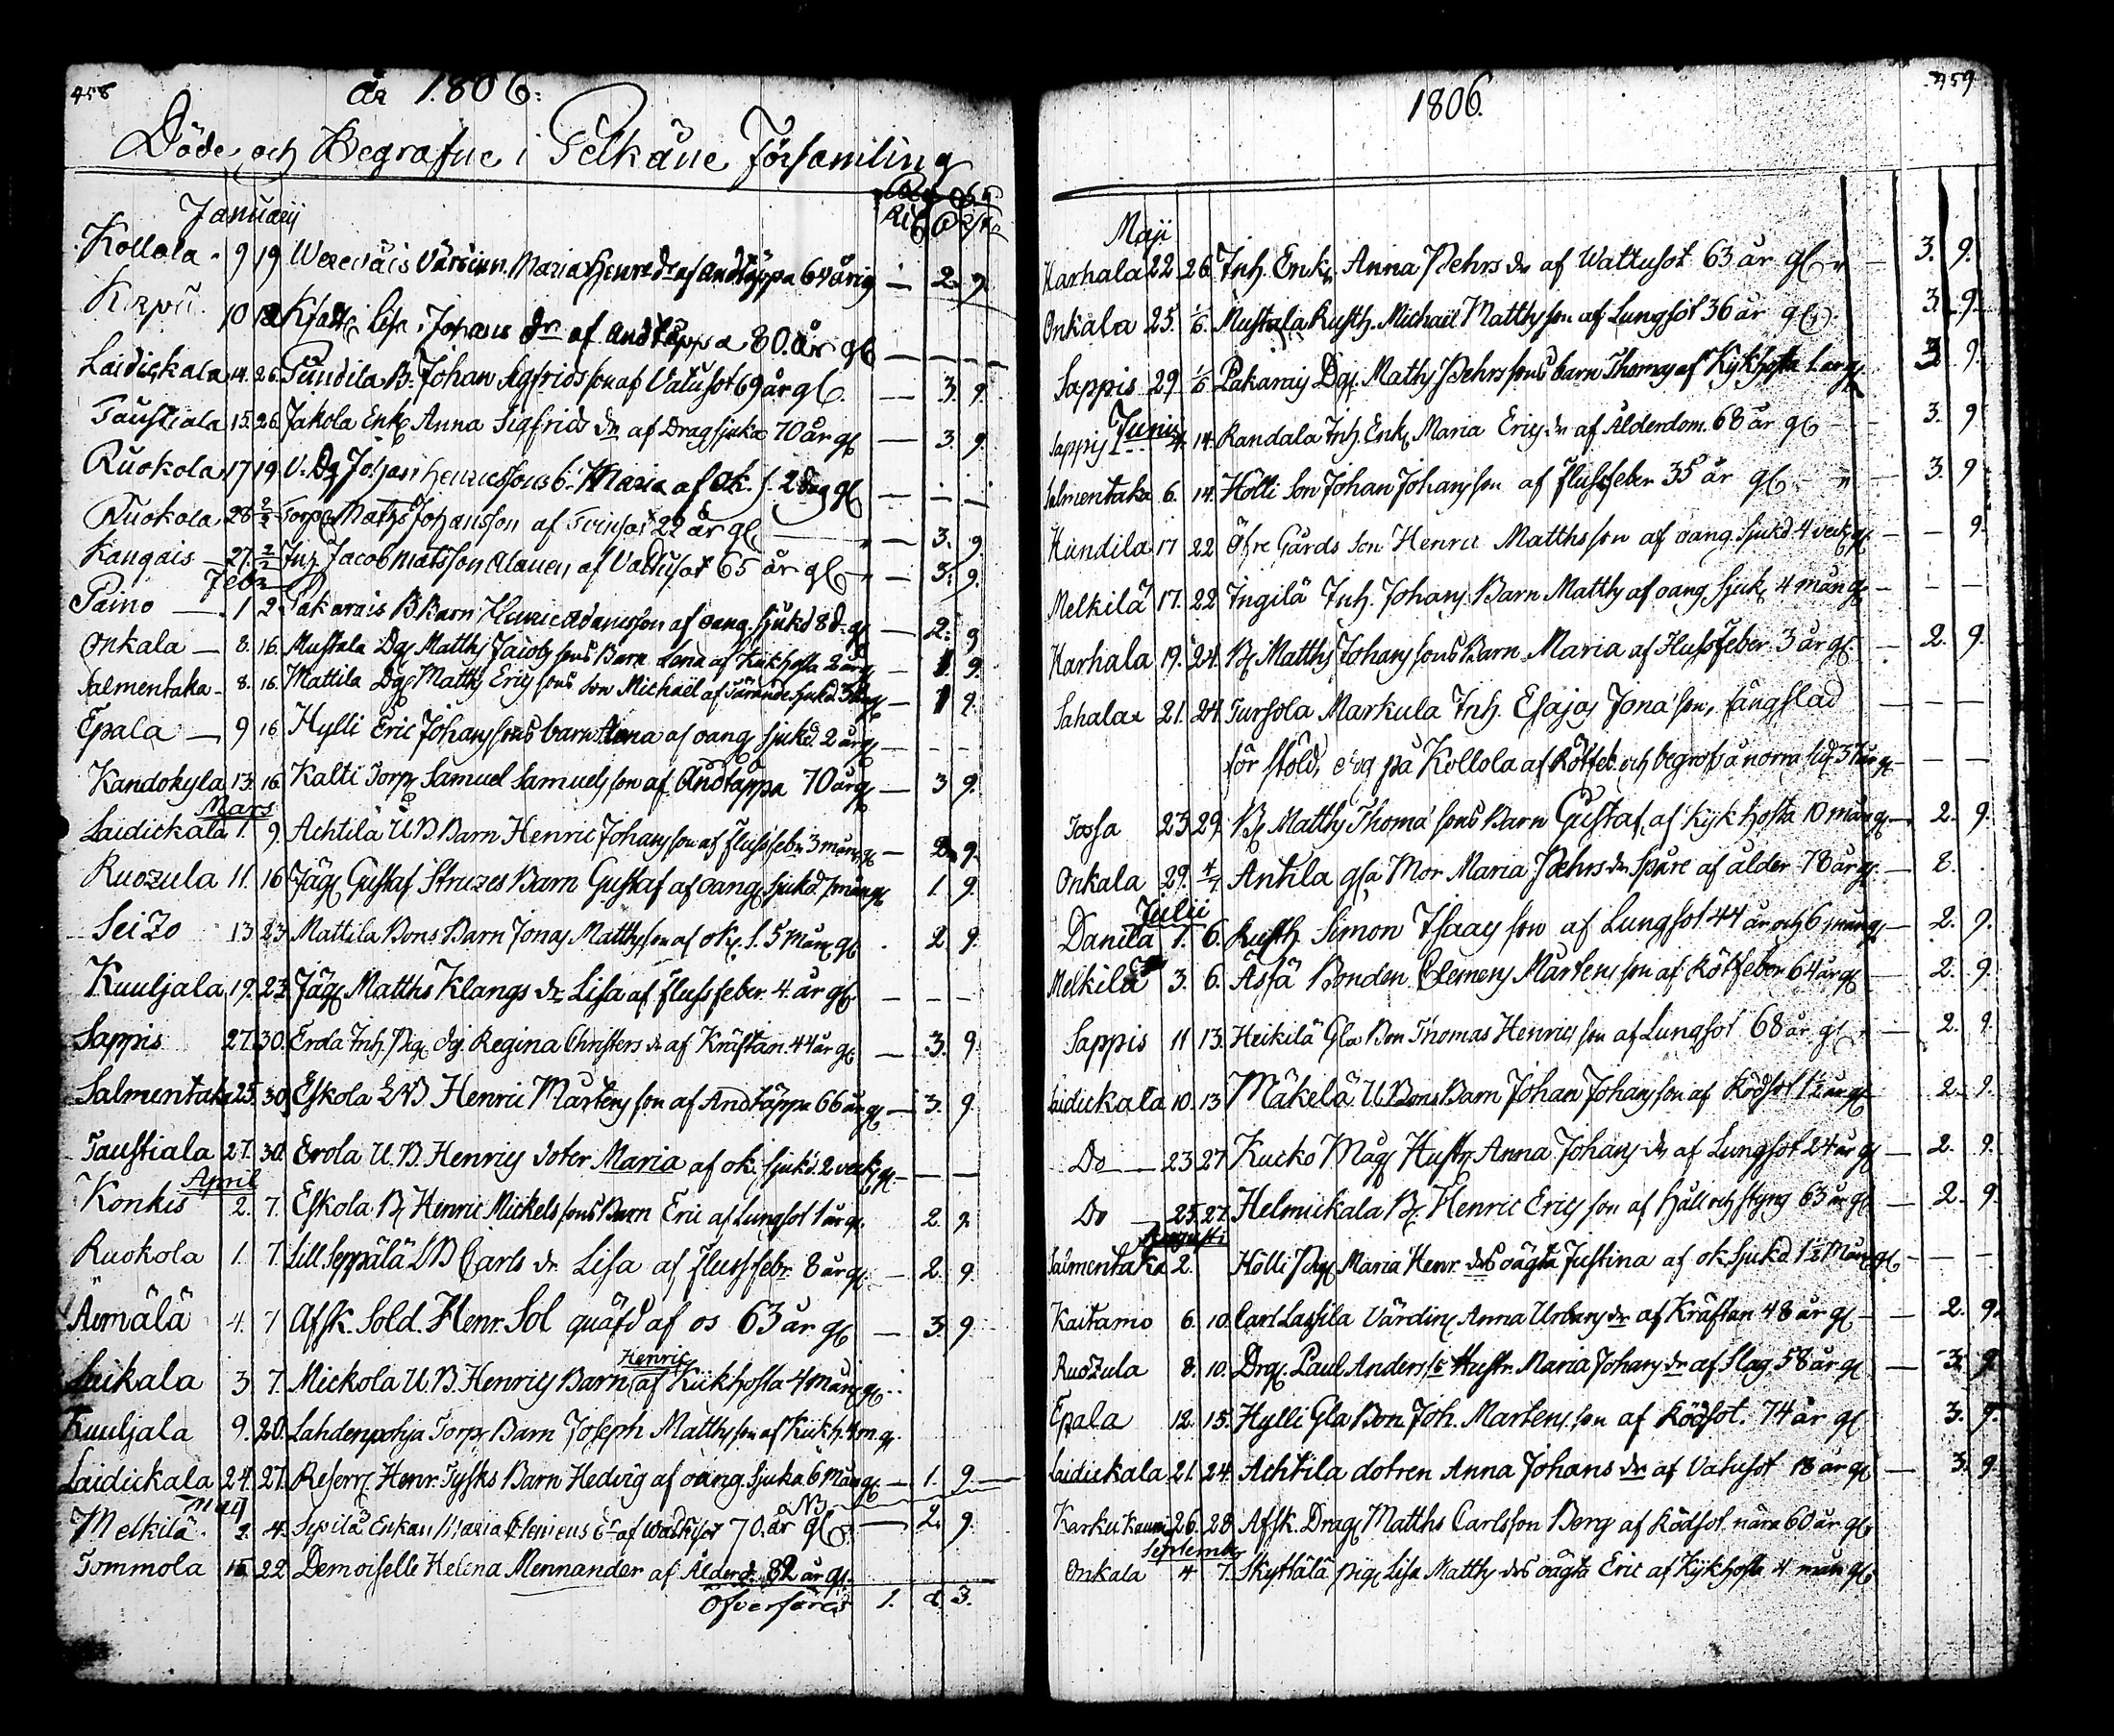 458
År 1806.
Döde och Begrafne i Pelkäne Församling
Januarii
Kollola. 9 19 Värdinn. Maria Henrs dr af Andtäppa 64 årig — 2. 9.
10 Lisa Johans dr af andtäppa 80. år gl — — —
Laidickala 14. 26. Pundila B. Johan Sigfridsson af Vatusot 69 år gl. — 3. 9.
Taustiala 15. 26. Jakola Enk. Anna Sigfrids dr af Dragsjuka 70 år gl — 3. 9.
Ruokola 17 19 Johan Henricssons b. Maria af ok. s. 2 dag gl — — —
Ruokola 28 2/2 Torp. Maths Johansson af Tvinsot 22 år gl. — 3. 9.
Kangais — 27. 2/2 Inh. Jacob Matsson Alanen af Vattusot 65 år gl — 3. 9.
Febr.
Paino — 1 2 Pakarais B Barn Henric Adamsson af oang. sjukd 8 d. gl — 2. 9
Onkala — 8. 16. Mustala Dg. Matths Jacobssons Barn Lena af Kikhosta 2 år gl — 1. 9.
Salmentaka. 8. 16. Mattila Dg. Matths Erics sons son Michaël af sjukd. — 1 9.
Epala — 9 16 Hylli Eric Johanssons barn Anna af oang. sjukd. 2 år gl — — —
Kandokyla 13. 16. Kalti Torp. Samuel Samuelsson af Andtäppa 70 år gl — 3 9.
Mars
Laidickala 1. 9. Achtilä U B Barn Henric Johansson af flussfebr 3 mån. gl — 2. 9.
Ruozula 11. 16 Jäg. Gustaf Struzes Barn Gustaf af oang. sjukd. gl 1. 9.
Seizo 13 23. Mattila Bons Barn Jonas Matthsson af ok. s. 5 mån gl. 2 9.
Kuuljala 19. 23. Jäg. Matths Klangs dr Lisa af flussfeber. 4. år gl. — — —
Sappis 27. 30. Erola Inh. Pig. Regina Christers dr af Kräftan. 44 år gl. — 3. 9.
Salmentaka 25. 30. Eskola Henric Mårtensson af Andtäppa 66 år gl — 3. 9.
Taustiala 27. 30. Erola U. B. Henrics doter Maria af ok. sjukd. 2 veck. gl — — —
April
Konkis 2. 7. Eskola B. Henric Mickelssons Barn Eric af Lungsot 1 år gl. 2. 9.
Ruokola 1. 7. Lill Seppälä Carls dr Lisa af flussfebr. 8 år gl. — 2. 9
Äimälä 4. 7 Afsk. Sold. Henr. Sol quäfd af os 63 år gl — 3. 9
Laikala 3 7. Mickola U. B. Henrics Barn Henric af Kikhosta 4 mån. gl.
Kuuljala 9. 20. Lahdenpohja Torp. Barn Joseph Matthsson af Kikh. 4 m. gl.
Laidickala 24. 27. Reserv. Henr. Tysks Barn Hedvig af oang. Sjuka 6 mån gl — 1. 9.
Maij
Melkilä. 2. 4. Sipilä Enkan Maria Clemens dr af Wattusot 70. år gl — 2. 9.
Tommola 15 22 Demoiselle Helena Mennander af Ålderd. 82 år gl.
Öfverföres 1. 2. 3.
459
1806.
Maji
Harhala 22 26. Inh. Enk. Anna Pehrs dr af Wattusot 63 år gl — 3. 9.
Onkala 25. 1/6. Mustala Rusth. Michaël Matthsson af Lungsot 36 år gl. 3. 9.
Sappis 29. 1/6 Pakarais Dg. Maths Pehrssons barn Thomas af Kykhosta 3. 9.
Junii
Sappis 4. 14. Randala Inh. Enk. Maria Erics dr af Ålderdom. 68 år gl — 3. 9.
Salmentaka 6. 14. Hölli Son Johan Johansson af flussfeber 35 år gl — 3. 9
Hundila 17 22 Öfre Gårds Son Henric Matthsson af oang. sjukd 4 veck gl — — 9.
Melkilä 17. 22 Ingilä Inh. Johans Barn Matths af oang sjuk. 4 mån gl — — —
Harhala 19. 24. B. Matths Johanssons Barn Maria af Flussfeber 3 år gl. — 2. 9.
Sahalax 21. 24. Tursola Markula Inh. Esajas Jonasson, fängslad — — —
för stöld, dog på Kollola af Rötfeb. och begrofs å norra sid. 37 år gl — — —
Jossa 23 29. B. Matths Thomasons Barn Gustaf, af Kykhosta 10 mån gl — 2. 9.
Onkala 29. 4/7. Antila gla Mor Maria Pehrs dr Spåre af ålder 78 år gl. — 2.
Julii
Danila 1. 6. Rusth. Simon Isaacsson af Lungsot 44 år och 6 mån gl — 2. 9.
Melkilä 3. 6. Äsjä Bonden Clemens Mårtensson af Rötfeber 64 år gl — 2. 9.
Sappis 11 13. Heikilä Gla Bon Thomas Henricsson af Lungsot 68 år gl — 2. 9.
Laidickala 10. 13 Mäkelä U. Bons Barn Johan Johansson af Rödsot 1½ år gl 2. 9.
Do — 23 27 Kucko Måg Hustr. Anna Johans dr af Lungsot 24 år gl — 2. 9.
Do — 25. 27. Helmikala B. Henric Ericsson af håll och styng 63 år gl — 2. 9.
Augusti
Salmentaka 2. Hölli Pig. Maria Henr. drs oägta Justina af ok. sjukd 1½ Mån gl — — —
Kaitamo 6. 10. Carl Lassila Värdin. Anna Urbans dr af Kräftan 48 år gl — 2. 9.
Ruozula 8. 10. Drg. Paul Anderss Hustr. Maria Johans dr af Slag. 58 år gl — 3. 9.
Epala 12. 15. Hylli Gla Bon Joh. Mårtensson af Rödsot. 74 år gl 3. 9.
Laidickala 21. 24. Achtila dotren Anna Johans dr af Vatusot 18 år gl — 3. 9.
26. 28. Afsk. Drag. Matths Carlsson Berg af Rödsot nära 60 år gl.
Septembr
Onkala 4 7. Skyttälä Pig. Lisa Matths drs oägta Eric af Kykhosta 4 mån gl.